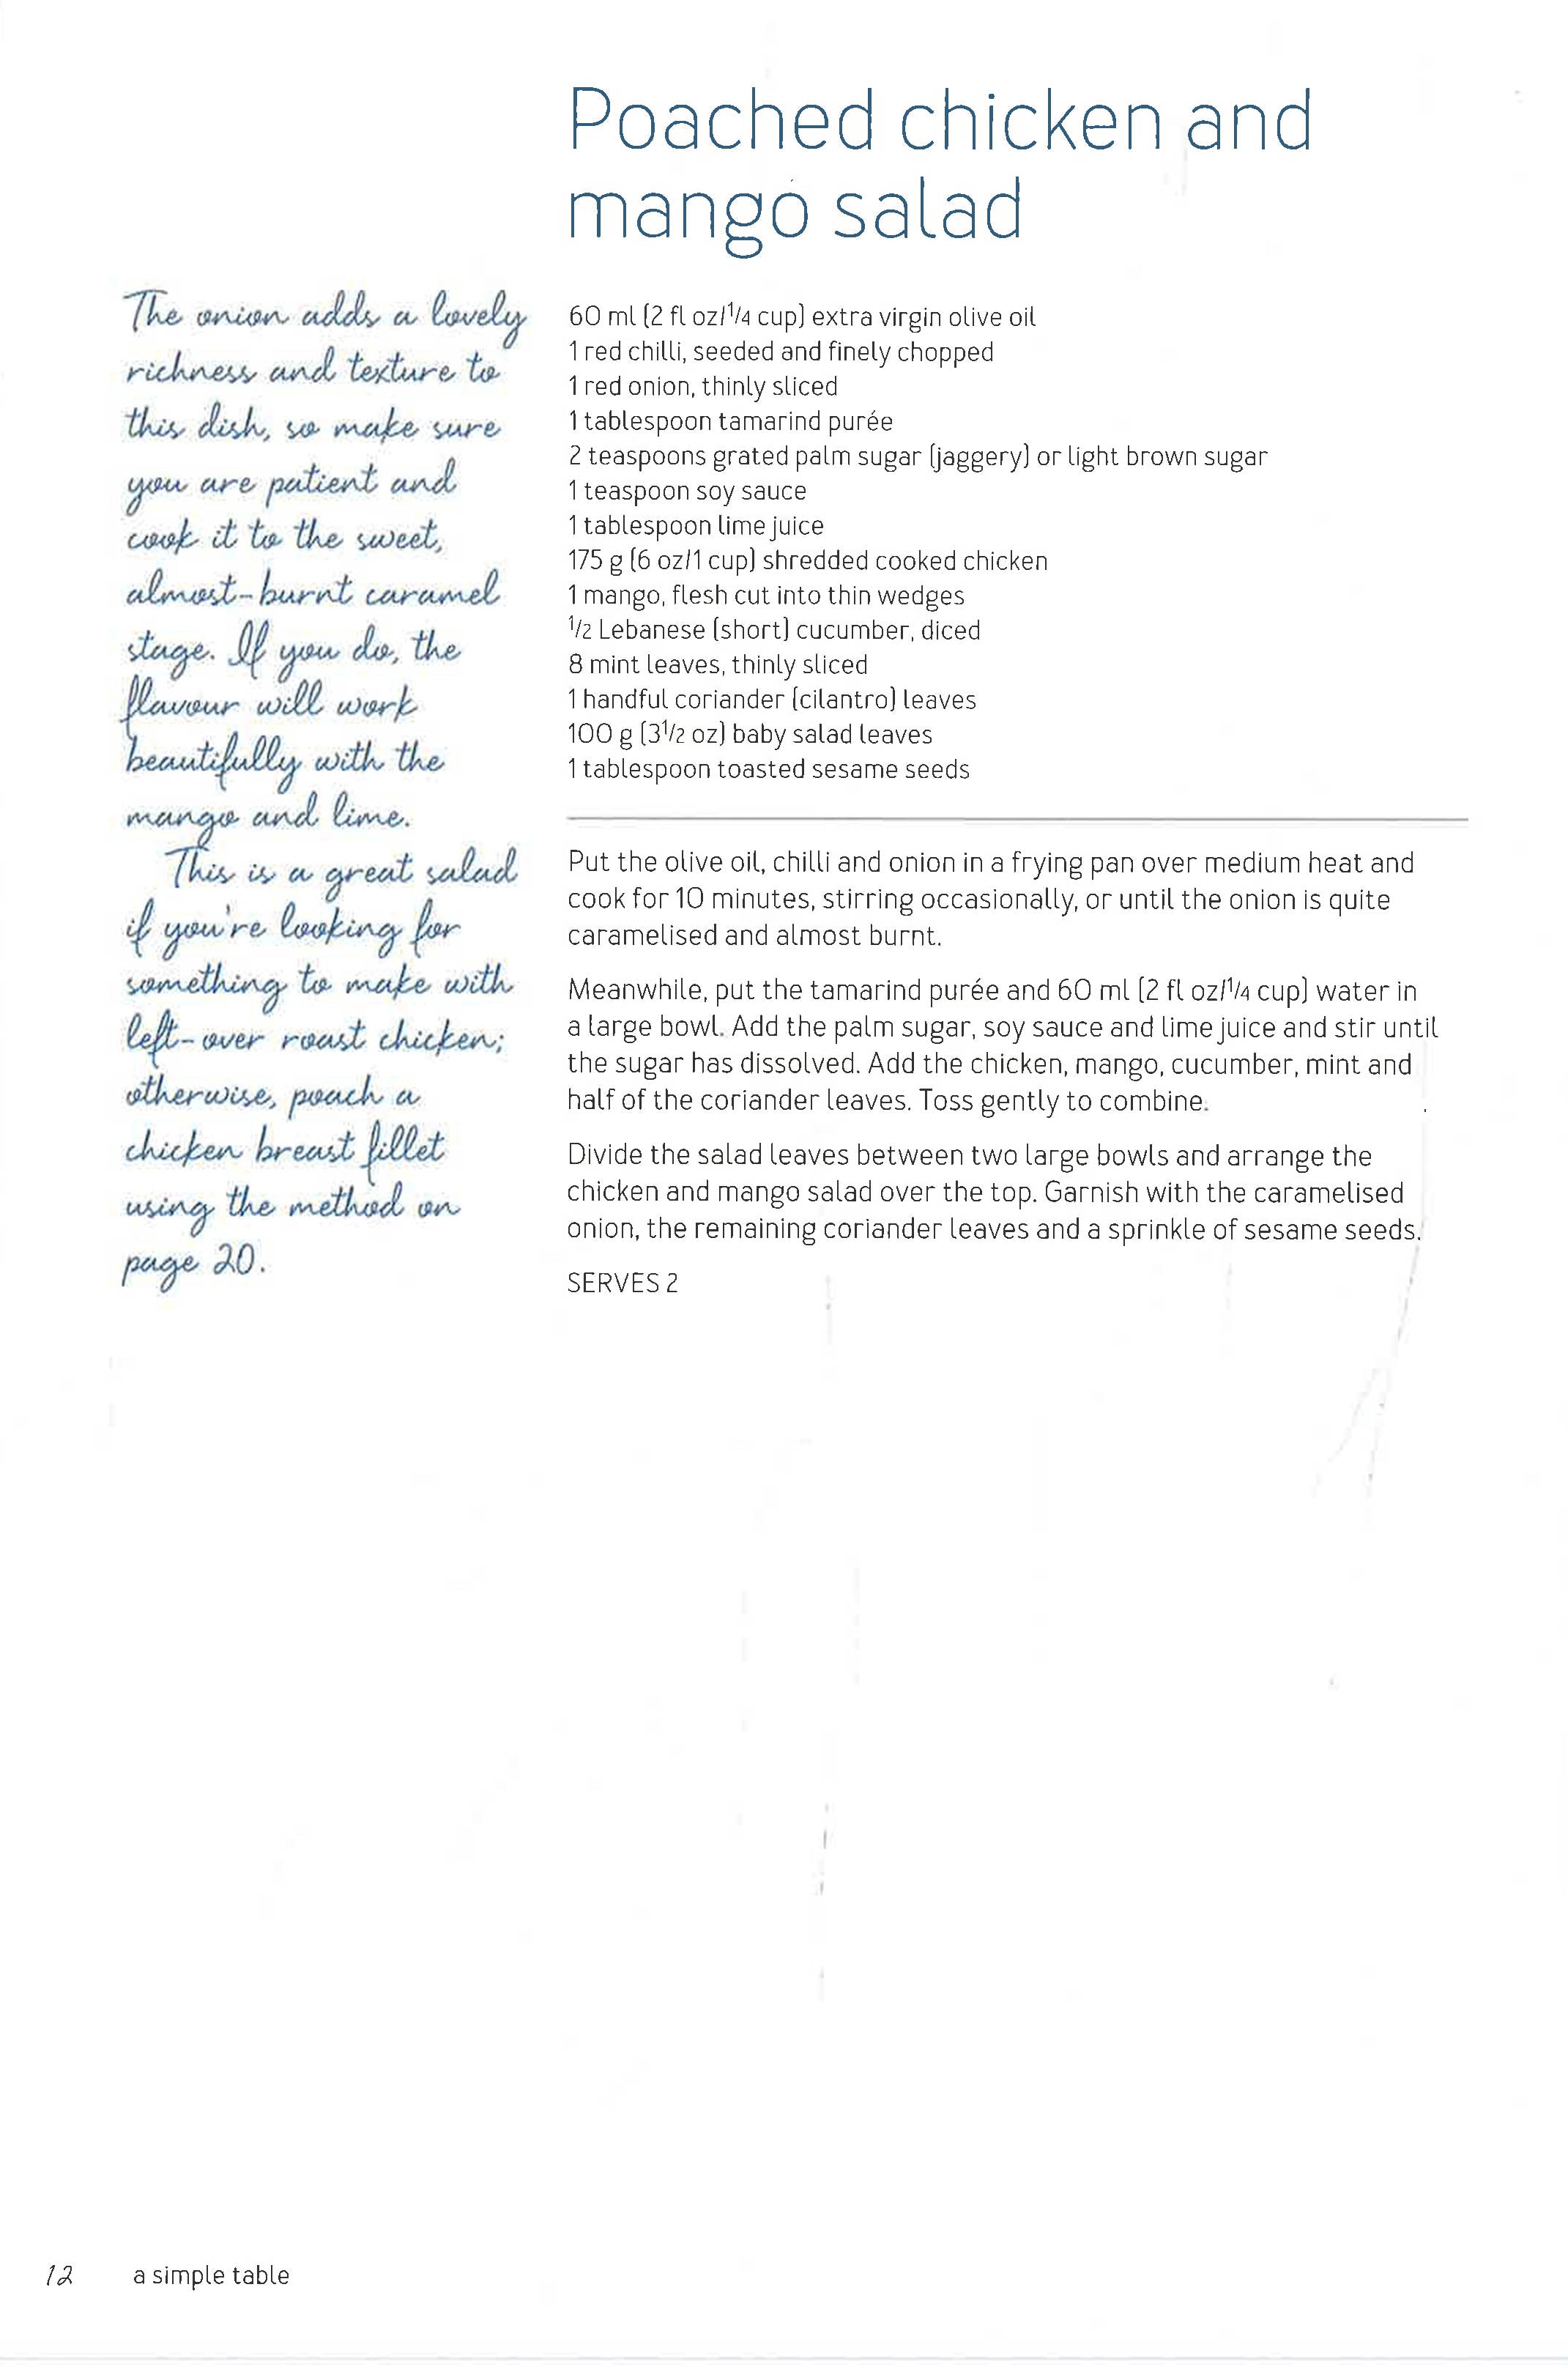 Poached chicken and
mango salad
The onion adds a lovely
richness and texture to
this dish, so make sure
you are patient and
cook it to the sweet,
almost-burnt caramel
stage. If you do, the
flavour will work
beautifully with the
mango and lime.
This is a great salad
if you're looking for
something to make with
left-over roast chicken;
otherwise, poach a
chicken breast fillet
using the method on
page 20.
60 ml (2 fl oz/1/4 cup) extra virgin olive oil
1 red chilli, seeded and finely chopped
1 red onion, thinly sliced
1 tablespoon tamarind purée
2 teaspoons grated palm sugar (jaggery) or light brown sugar
1 teaspoon soy sauce
1 tablespoon lime juice
175 g (6 oz/1 cup) shredded cooked chicken
1 mango, flesh cut into thin wedges
1/2 Lebanese (short) cucumber, diced
8 mint leaves, thinly sliced
1 handful coriander (cilantro) leaves
100 g (31/2 oz) baby salad leaves
1 tablespoon toasted sesame seeds
Put the olive oil, chilli and onion in a frying pan over medium heat and
cook for 10 minutes, stirring occasionally, or until the onion is quite
caramelised and almost burnt.
Meanwhile, put the tamarind purée and 60 ml (2 fl oz/1/4 cup) water in
a large bowl. Add the palm sugar, soy sauce and lime juice and stir until
the sugar has dissolved. Add the chicken, mango, cucumber, mint and
half of the coriander leaves. Toss gently to combine.
Divide the salad leaves between two large bowls and arrange the
chicken and mango salad over the top. Garnish with the caramelised
onion, the remaining coriander leaves and a sprinkle of sesame seeds.
SERVES 2
12 a simple table